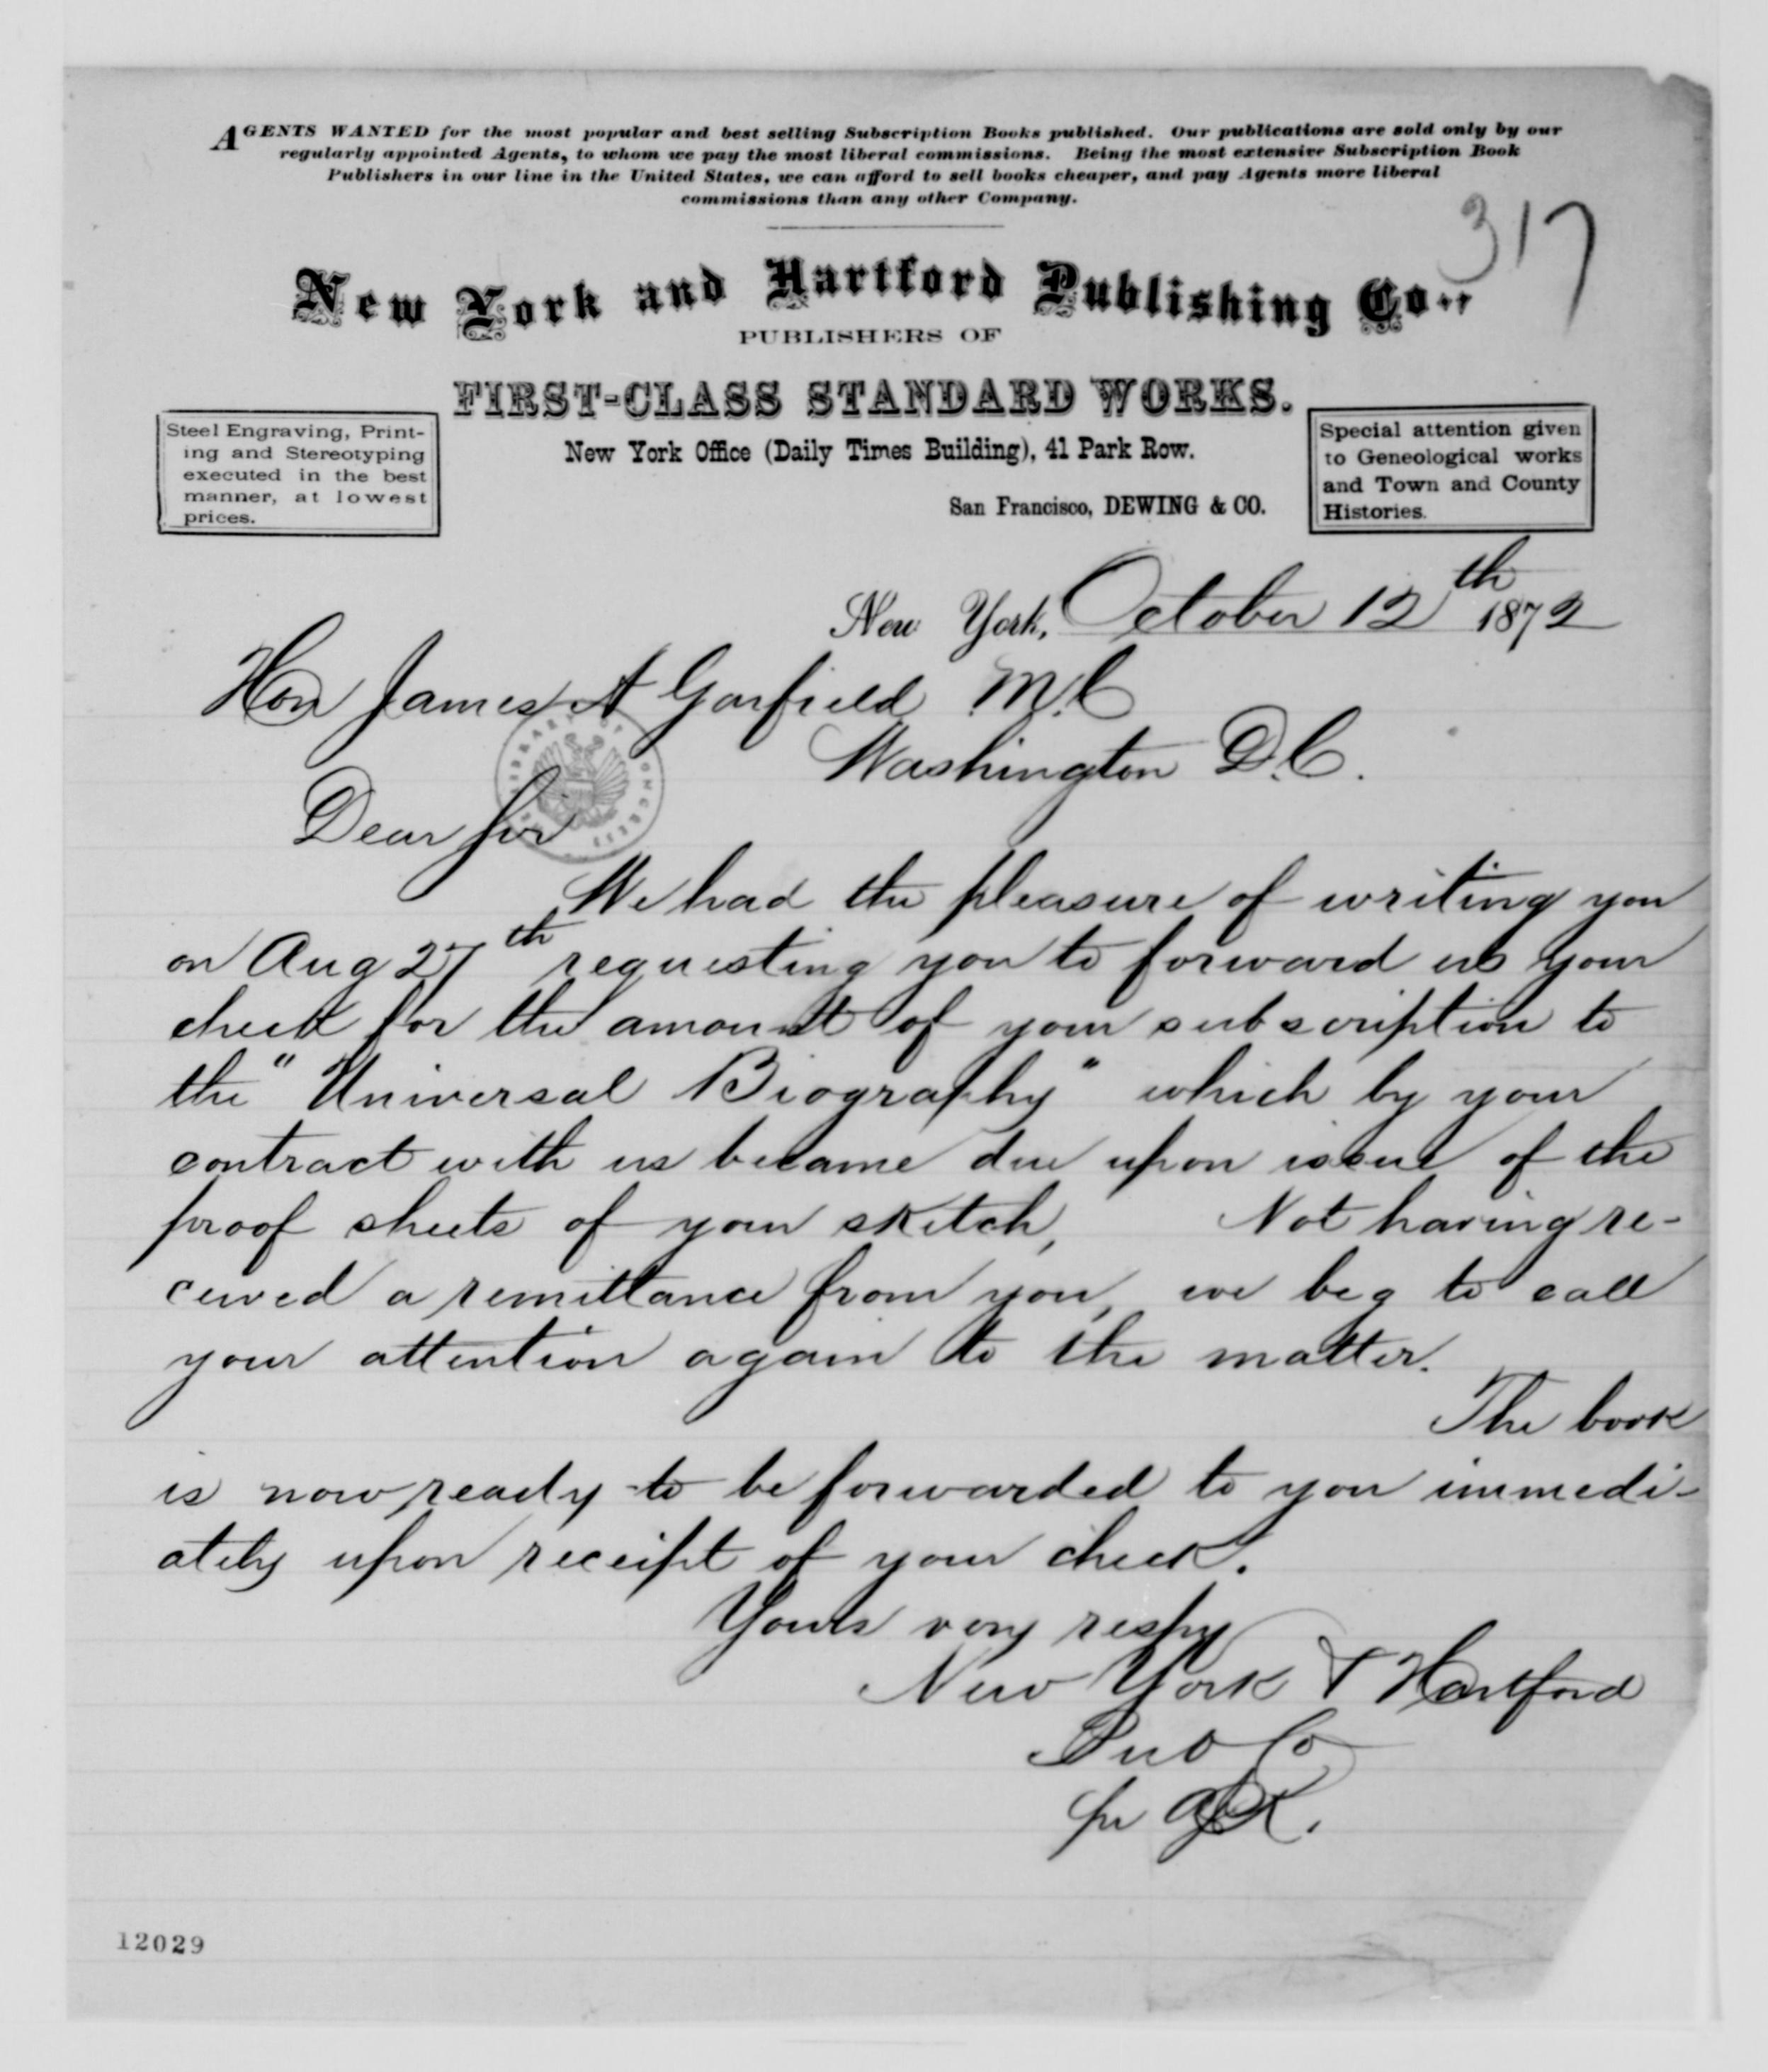 AGENTS WANTED for the most popular and best selling Subscription Books published. Our publications are sold only by our
regularly appointed Agents, to whom we pay the most liberal commissions. Being the most extensive Subscription Book
Publishers in our line in the United States, we can afford to sell books cheaper, and pay Agents more liberal
commissions than any other Company.
317
New York and Hartford Publishing Co.,
PUBLISHERS OF
FIRST-CLASS STANDARD WORKS.
Steel Engraving, Print-
ing and Stereotyping
executed in the best
manner, at lowest
prices.
New York Office (Daily Times Building), 41 Park Row.
San Francisco, DEWING & CO.
Special attention given
to Geneological works
and Town and County
Histories.
New York, October 12th 1872
Hon James A Garfield M.C
Washington D.C.
LIBRARY OF CONGRESS
Dear Sir
We had the pleasure of writing you
on Aug 27th requesting you to forward us your
check for the amount of your subscription to
the "Universal Biography" which by your
contract with us became due upon issue of the
proof sheets of your sketch, Not having re-
ceived a remittance from you, we beg to call
your attention again to the matter.
The book
is now ready to be forwarded to you immedi-
ately upon receipt of your check.
Yours very respy
New York & Hartford
Pub Co
pr
12029